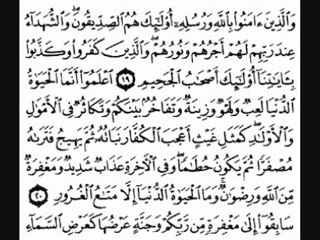 وَالَّذِينَ ءَامَنُوا۟ بِٱللَّهِ وَرُسُلِهِۦٓ أُو۟لَٰٓئِكَ هُمُ ٱلصِّدِّيقُونَ ۖ وَٱلشُّهَدَآءُ
عِندَ رَبِّهِمْ لَهُمْ أَجْرُهُمْ وَنُورُهُمْ ۖ وَٱلَّذِينَ كَفَرُوا۟ وَكَذَّبُوا۟
بِـَٔايَٰتِنَآ أُو۟لَٰٓئِكَ أَصْحَٰبُ ٱلْجَحِيمِ ١٩ ٱعْلَمُوٓا۟ أَنَّمَا ٱلْحَيَوٰةُ
ٱلدُّنْيَا لَعِبٌ وَلَهْوٌ وَزِينَةٌ وَتَفَاخُرٌۢ بَيْنَكُمْ وَتَكَاثُرٌ فِى ٱلْأَمْوَٰلِ
وَٱلْأَوْلَٰدِ ۖ كَمَثَلِ غَيْثٍ أَعْجَبَ ٱلْكُفَّارَ نَبَاتُهُۥ ثُمَّ يَهِيجُ فَتَرَىٰهُ
مُصْفَرًّا ثُمَّ يَكُونُ حُطَٰمًا ۖ وَفِى ٱلْءَاخِرَةِ عَذَابٌ شَدِيدٌ وَمَغْفِرَةٌ
مِّنَ ٱللَّهِ وَرِضْوَٰنٌ ۚ وَمَا ٱلْحَيَوٰةُ ٱلدُّنْيَآ إِلَّا مَتَٰعُ ٱلْغُرُورِ ٢٠
سَابِقُوٓا۟ إِلَىٰ مَغْفِرَةٍ مِّن رَّبِّكُمْ وَجَنَّةٍ عَرْضُهَا كَعَرْضِ ٱلسَّمَآءِ